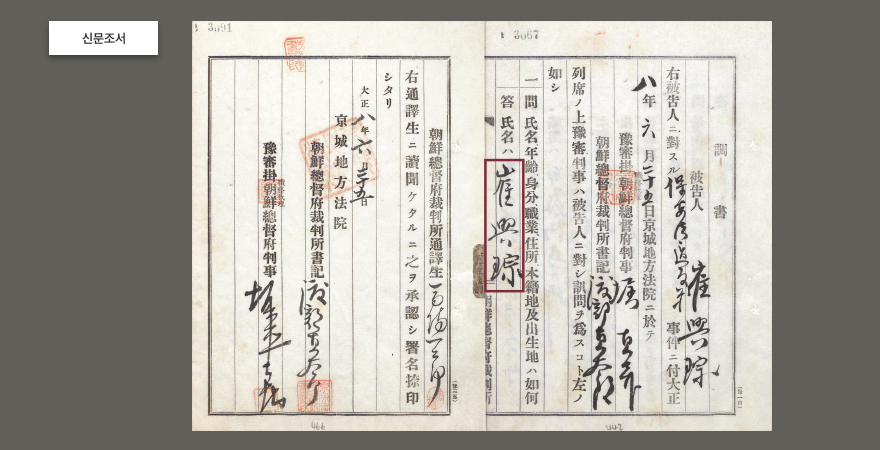 신문조서
3067
調書
被告人 崔興琮
右被告人ニ對スル保安法違反 事件ニ付大正
八年六月二十五日京城地方法院ニ於テ
豫審掛朝鮮總督府判事
朝鮮總督府裁判所書記 渡部
列席ノ上豫審判事ハ被告人ニ對シ訊問ヲ爲スコト左ノ
如シ
一問 氏名年齡身分職業住所本籍地及出生地ハ如何
答 氏名ハ 崔興琮
3091
朝鮮總督府裁判所通譯生
右通譯生ニ讀聞ケタルニ之ヲ承認シ署名捺印
シタリ
大正八年六月二十五日
京城地方法院
朝鮮總督府裁判所書記 渡部
豫審掛朝鮮總督府判事
466
442